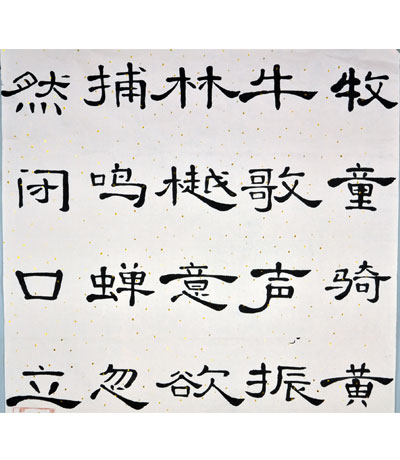 牧童骑黄
牛歌声振
林樾意欲
捕鸣蝉忽
然闭口立